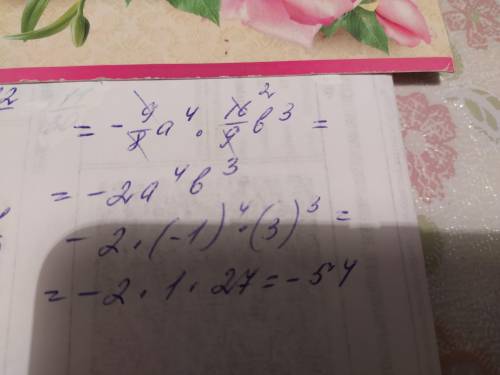 = - 9/8 a⁴ · 16/9 b³ =
2
= - 2a⁴b³
- 2 · (-1)⁴ · (3)³ =
= - 2 · 1 · 27 = - 54